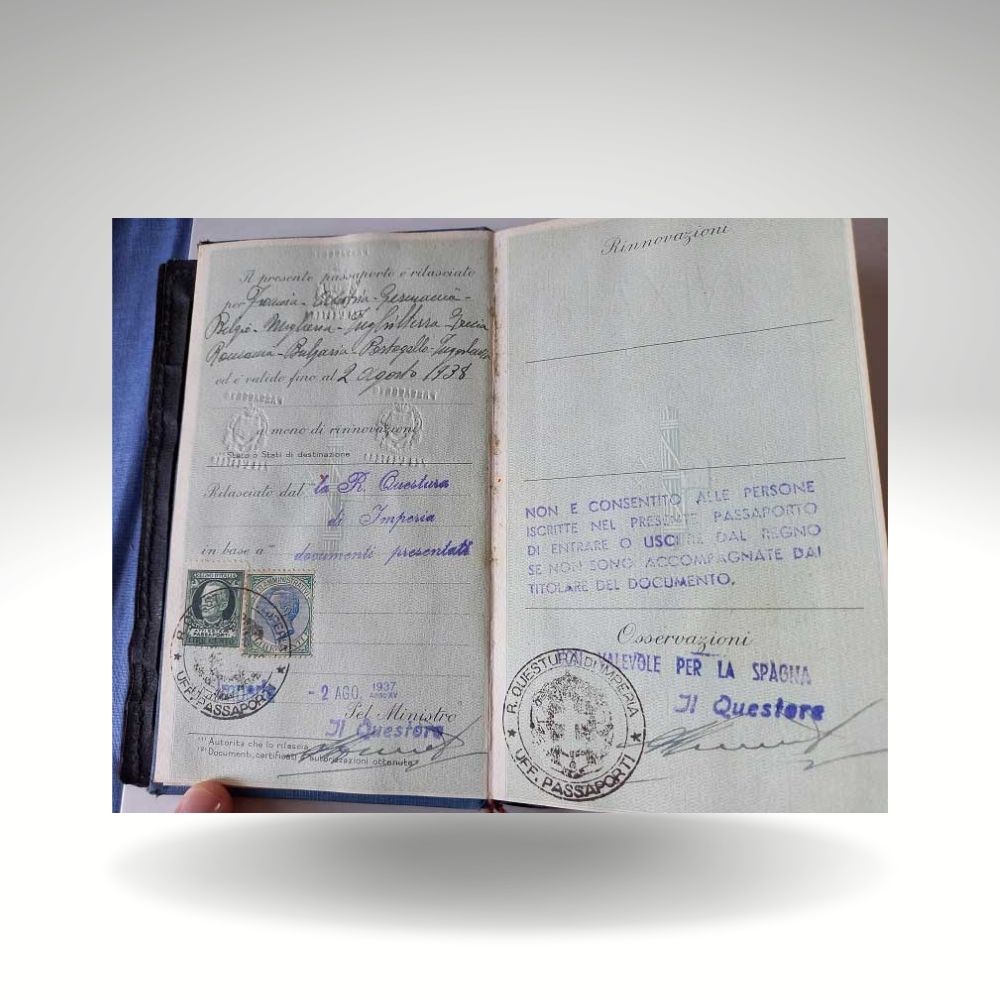 Il presente passaporto è rilasciato
per Francia - Austria - Germania -
Belgio - Ungheria - Inghilterra Grecia
Romania - Bulgaria - Portogallo - Jugoslavia
ed è valido fino al 2 agosto 1938
a meno di rinnovazioni
Stato o Stati di destinazione
Rilasciato dal la R. Questura
di Imperia
in base a documenti presentati
REGNO D'ITALIA
Imperia - 2 AGO. 1937
Pel Ministro
Il Questore
R. QUESTURA DI IMPERIA
UFF. PASSAPORTI
(1) Autorità che lo rilascia
(2) Documenti, certificati, autorizzazioni ottenute
Rinnovazioni
NON E CONSENTITO ALLE PERSONE
ISCRITTE NEL PRESENTE PASSAPORTO
DI ENTRARE O USCIRE DAL REGNO
SE NON SONO ACCOMPAGNATE DAL
TITOLARE DEL DOCUMENTO.
Osservazioni
VALEVOLE PER LA SPAGNA
Il Questore
R. QUESTURA DI IMPERIA
UFF. PASSAPORTI